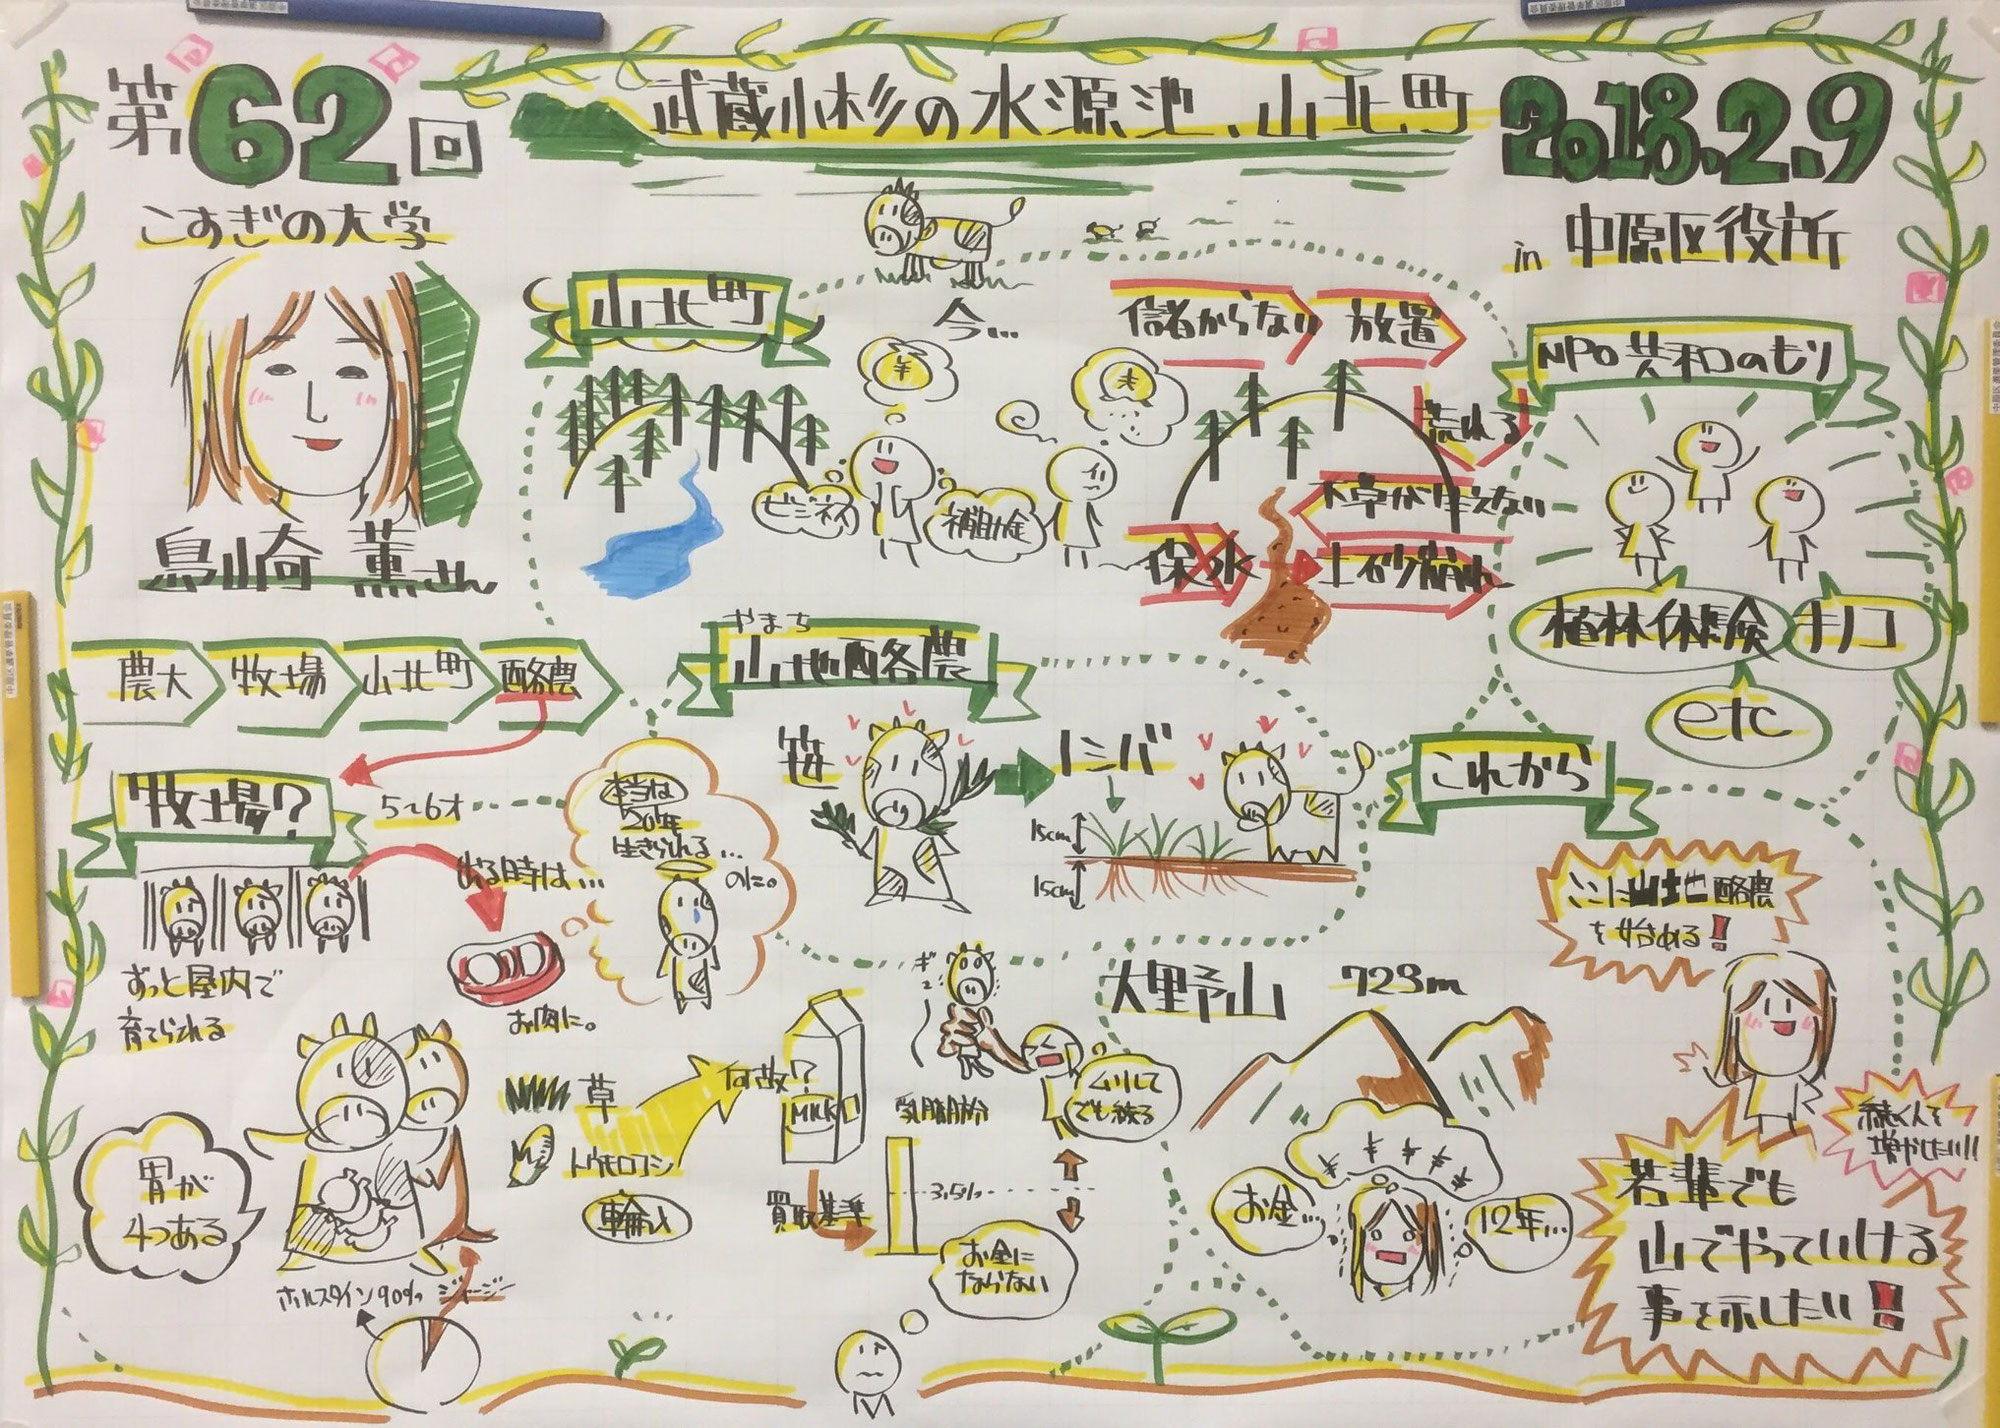 第62回
武蔵小杉の水源池、山北町
2018.2.9
こすぎの大学
in 中原区役所
島崎 薫さん
山北町
今…
儲からない
放置
荒れる
下草が生えない
土砂崩れ
保水
ビジネス
補助金
NPO 共和のもり
植林体験
キノコ
etc
農大
牧場
山北町
酪農
やまち
山地酪農
笹
ノシバ
15cm
15cm
これから
牧場?
5~6才
出る時は…
本当は
20年
生きられる…
のに。
ずっと屋内で
育てられる
お肉に。
ここに山地酪農
を始める!
大野山 723m
続く人を
増やしたい!!
若輩でも
山でやっていける
事を示したい!
お金…
12年…
¥ ¥ ¥ ¥ ¥
胃が
4つある
ホルスタイン90%
ジャージー
草
トウモロコシ
輸入
何故?
MILK
買取基準
乳脂肪分
3.5%
ムリして
でも絞る
お金に
ならない
中原区選挙管理委員会